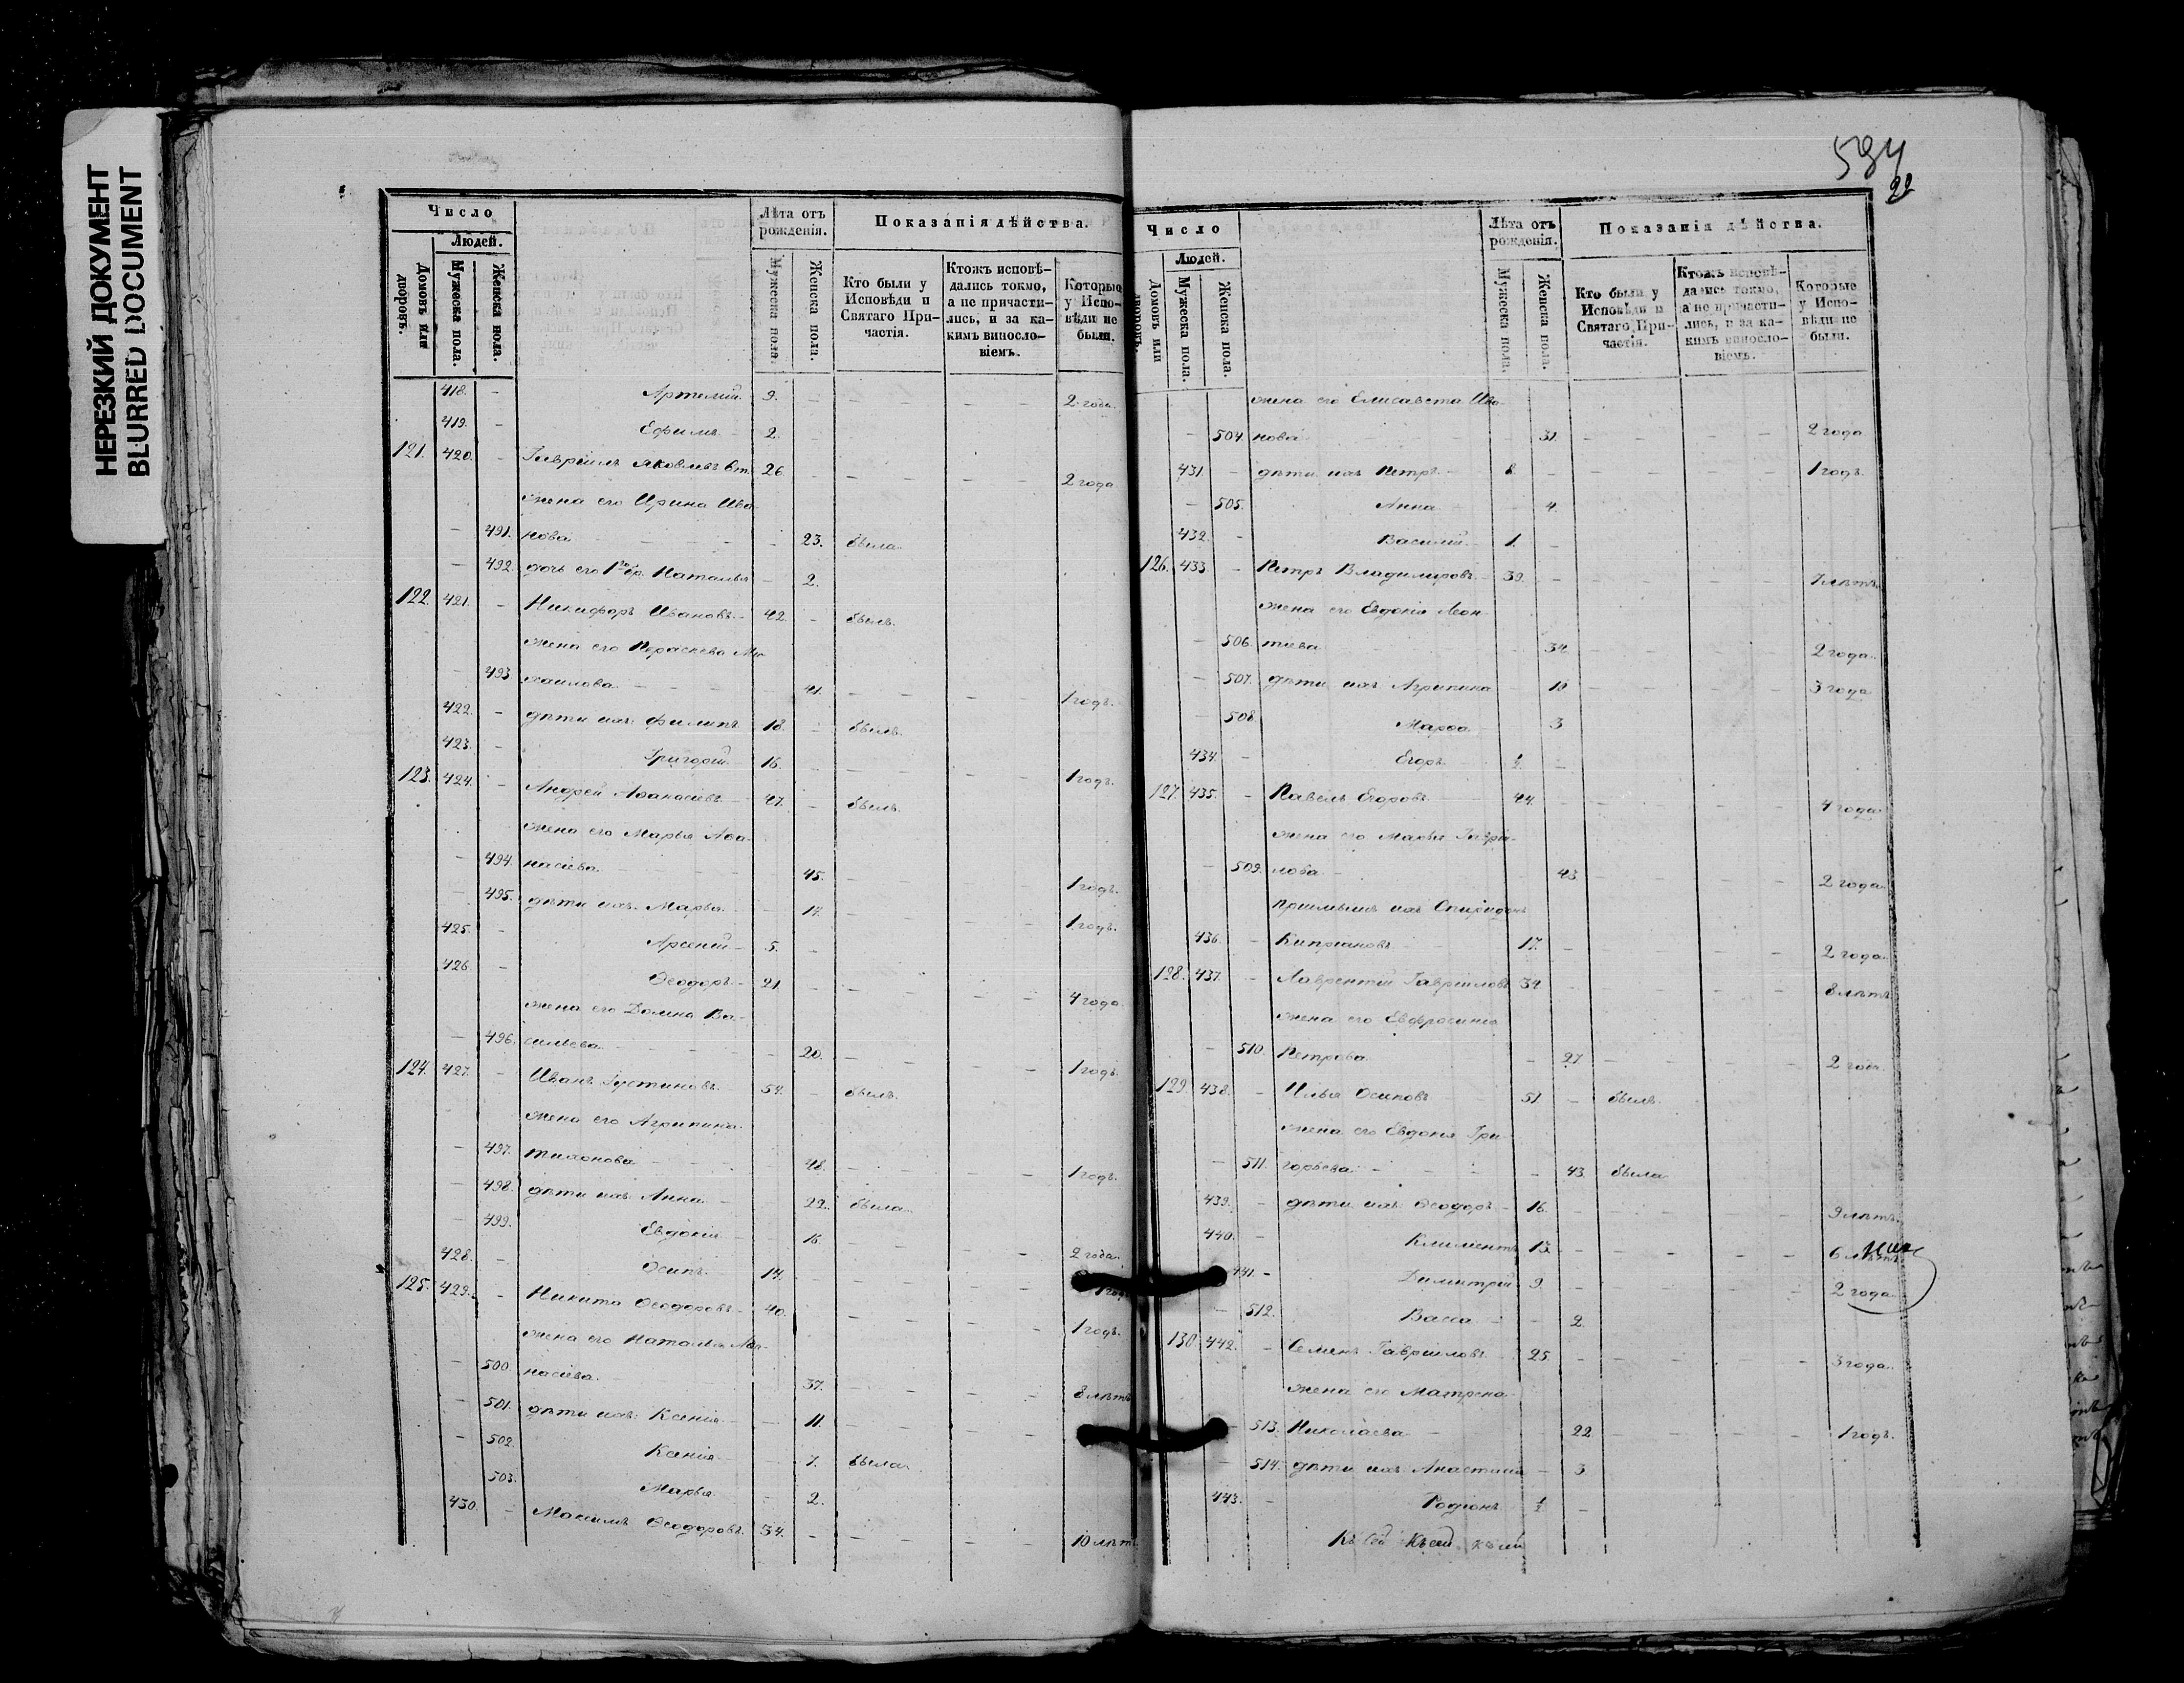 НЕРЕЗКИЙ ДОКУМЕНТ
BLURRED DOCUMENT
Число
Людей.
Домовъ или дворовъ.
Мужеска пола.
Женска пола.
Лѣта отъ рожденія.
Мужеска пола.
Женска пола.
Показанія дѣйства.
Кто были у Исповѣди и Святаго Причастія.
Ктожъ исповѣ-
дались токмо,
а не причасти-
лись, и за ка-
кимъ винсло-
віемъ.
Которые
у Испо-
вѣди не
были.
418. - Артемій. 9. - 2 года.
419. - Ефимъ. 2.
121. 420. - Гавріилъ Яковлевъ 26. - 2 года
жена его Ирина Ива-
- 491. нова - 23. была.
- 492. дочь его Наталья - 2.
122. 421. - Никифоръ Ивановъ. 42. - былъ.
жена его Параскева Ми-
- 493 хаилова. - 41. - 1 годъ.
422. - дѣти ихъ: Филипъ 18. - былъ.
423. - Григорій. 16. - 1 годъ.
123. 424. - Андрей Аѳанасіевъ 47. - былъ.
жена его Марья Аѳа-
- 494. насіева. - 45. - 1 годъ.
- 495. дѣти ихъ: Марья. - 17. - 1 годъ.
425. - Арсеній - 5. -
426. - Ѳеодоръ - 21. - 4 года
жена его Домна Ва-
- 496. сильева. - 20. - 1 годъ.
124. 427. - Иванъ Іустиновъ. 54. - былъ.
жена его Агрипина
- 497. Тихонова - 48. - 1 годъ.
- 498. дѣти ихъ: Анна - 22. была.
- 499. Евдокія - 16. - 2 года.
428. - Осипъ. 14. - 1 годъ
125. 429. - Никита Ѳеодоровъ. 40. - 1 годъ.
жена его Наталья Аѳа-
- 500. насіева. - 37. - 8 лѣтъ
- 501. дѣти ихъ: Ксенія - 11. -
- 502. Ксенія - 7. была.
- 503. Марья - 2.
430. - Максимъ Ѳеодоровъ. 34. - 10 лѣтъ
594
22
Число
Людей.
Домовъ или дворовъ.
Мужеска пола.
Женска пола.
Лѣта отъ рожденія.
Мужеска пола.
Женска пола.
Показанія дѣйства.
Кто были у Исповѣди и Святаго Причастія.
Ктожъ исповѣ-
дались токмо,
а не причасти-
лись, и за ка-
кимъ винсло-
віемъ.
Которые
у Испо-
вѣди не
были.
жена его Елисавета Ива-
- 504. нова - 31. - 2 года
431. - дѣти ихъ Петръ - 8. - 1 годъ.
- 505. Анна - 4.
432. - Василій. 1. -
126. 433 - Петръ Владимировъ. 39. - 7 лѣтъ
жена его Евдокія Леон-
- 506. тиева 34. - 2 года.
- 507. дѣти ихъ: Агрипина 10 - 3 года
- 508 Марѳа. 3
434. - Егоръ. 1/2 -
127. 435. - Павелъ Егоровъ. 44. - 4 года
жена его Марья Гаврі-
- 509. лова - 43. - 2 года.
пріемышъ ихъ Спиридонъ
436. - Кипріановъ. 17. - 2 года.
128. 437. - Лаврентій Гавріиловъ 34 - 8 лѣтъ
жена его Евфросинія
- 510. Петрова - 27 - 2 года.
129. 438. - Илья Осиповъ 51 - былъ.
жена его Евдокія Гри-
- 511. горьева - 43. была
439. - дѣти ихъ: Ѳеодоръ - 16. - 9 лѣтъ.
440. - Климентъ 13. - 6 лѣтъ
441. - Димитрій 9. - 2 года
- 512. Васса - 2.
130 442. - Семенъ Гавриловъ 25. - 3 года.
жена его Матрена
- 513. Николаева 22. - 1 годъ.
- 514. дѣти ихъ: Анастасія - 3
443. - Родіонъ 1/2 -